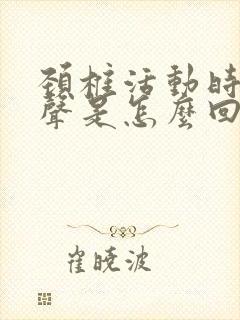 頸椎活動時
聲是怎麼回
崔曉波